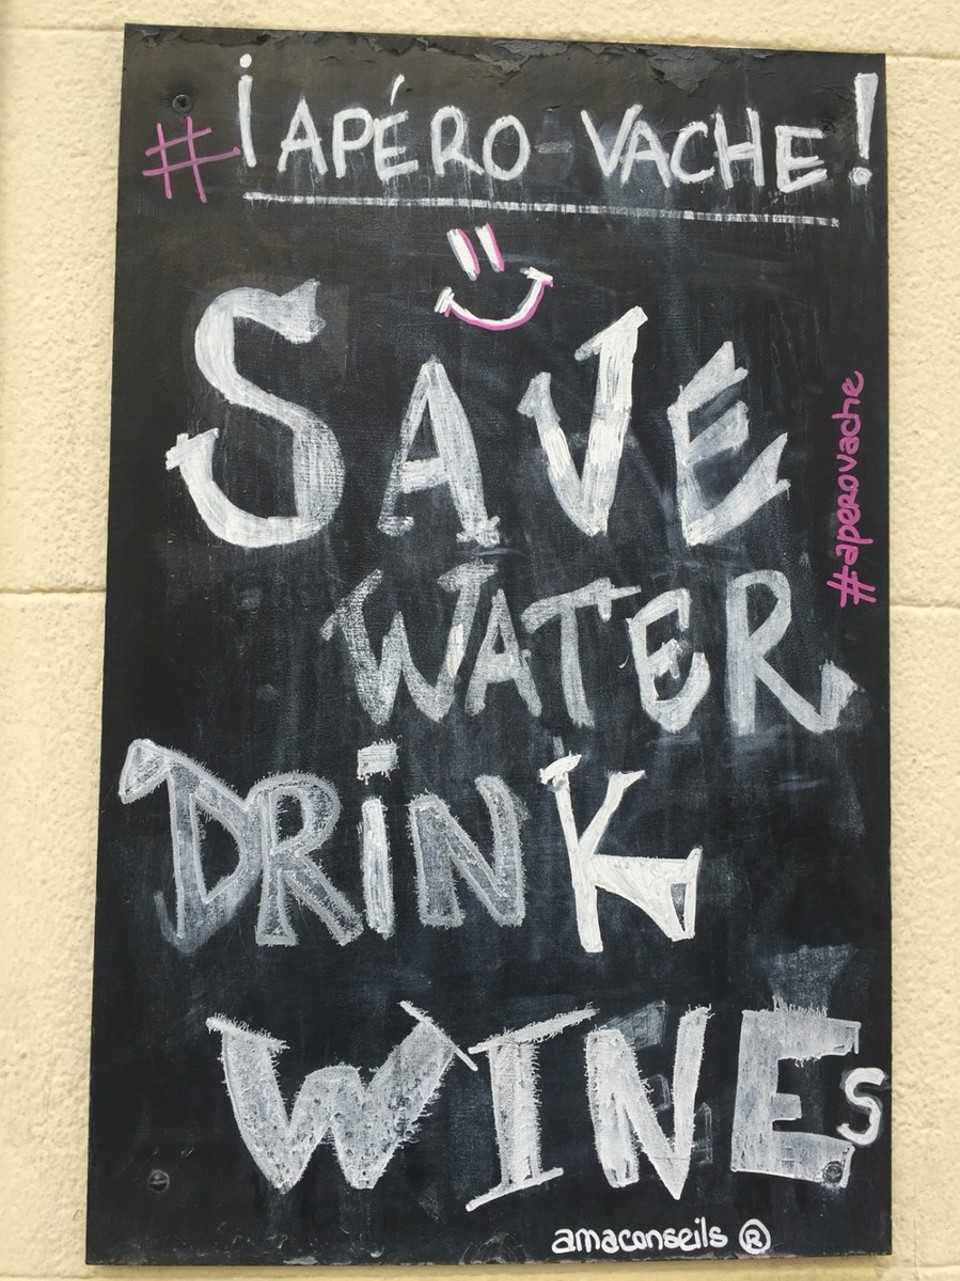 # ¡APÉRO-VACHE!
SAVE
WATER
DRiNK
WINEs
#aperovache
amaconseils ®